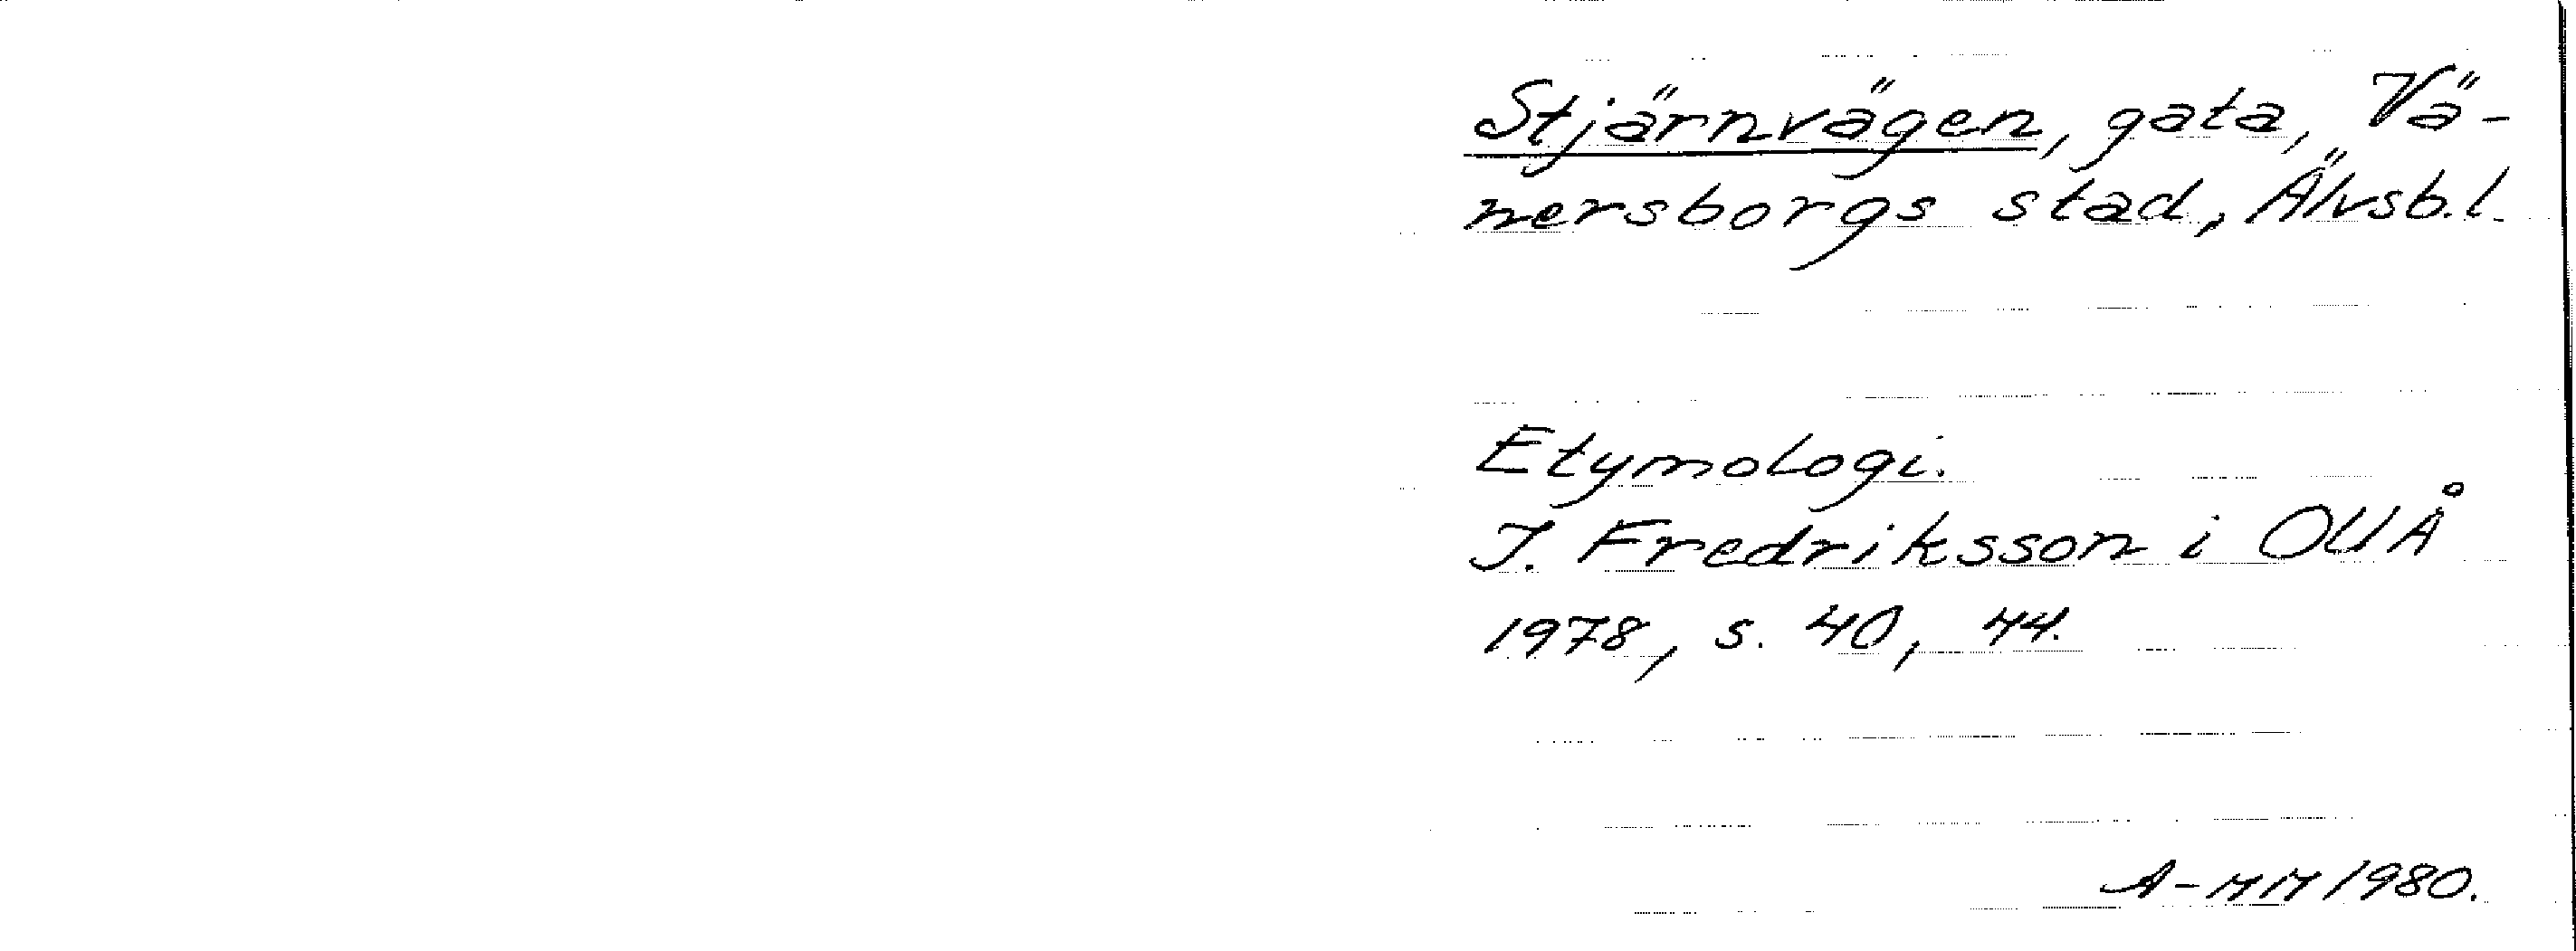 Stjärnvägen, gata, Vä-
nersborgs stad, Älvsb.l.
Etymologi.
I. Fredriksson i OUÅ
1978, s. 40, 44.
A-MM 1980.